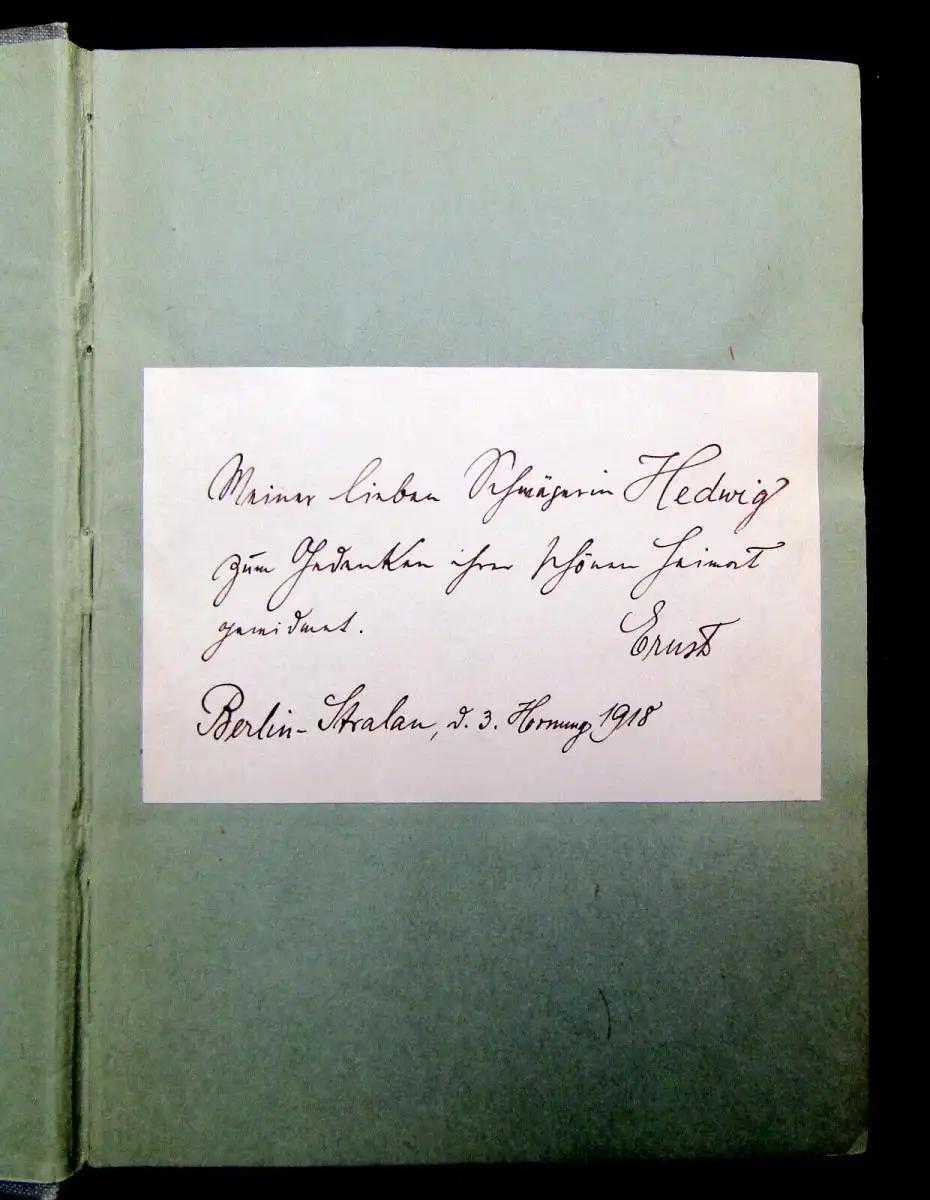 Meiner lieben Schwägerin Hedwig
zum Gedenken ihrer schönen Heimat
gewidmet.
Ernst
Berlin-Stralau, d. 3. Hornung 1918